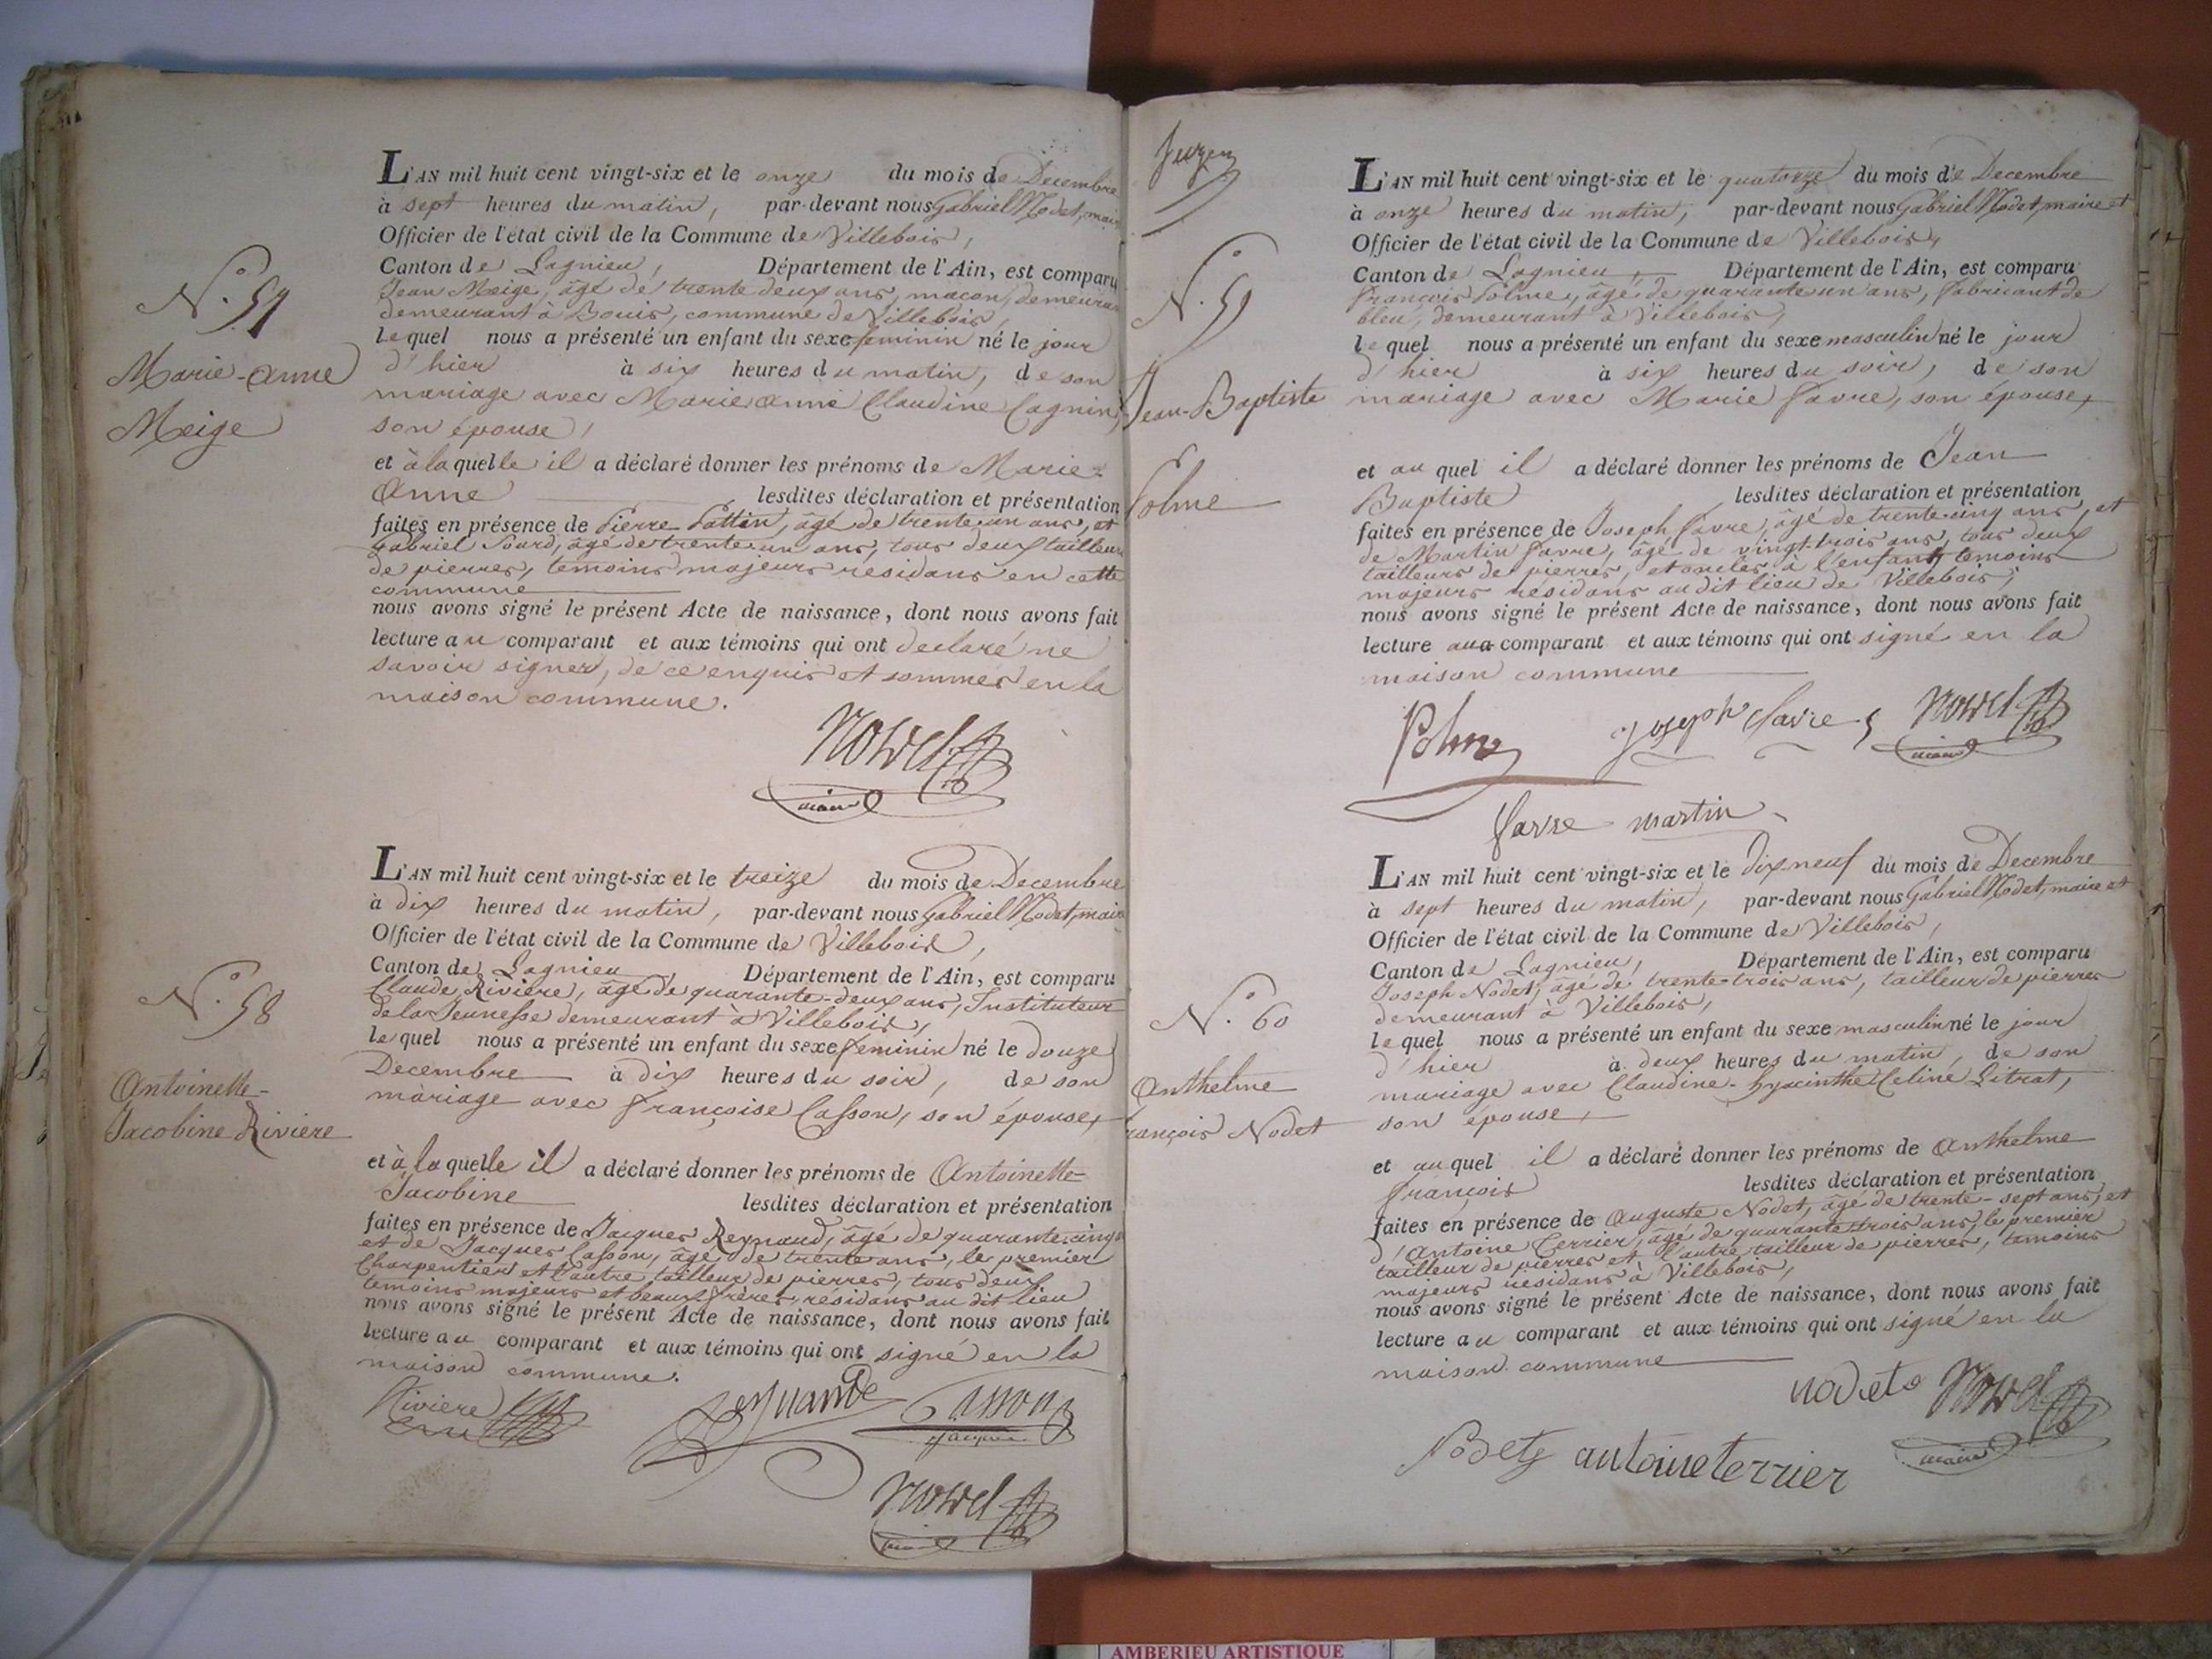 N.° 57
Marie-Anne
Meige
L'AN mil huit cent vingt-six et le onze du mois de Decembre
à sept heures du matin, par-devant nous Gabriel Nodet, maire
Officier de l'état civil de la Commune de Villebois,
Canton de Lagnieu, Département de l'Ain, est comparu
Jean Meige, âgé de trente deux ans, maçon, demeurant
demeurant à Bouis, commune de Villebois,
lequel nous a présenté un enfant du sexe feminin né le jour
d'hier à six heures du matin, de son
mariage avec Marie anne Claudine Cagnin,
son épouse,
et à laquelle il a déclaré donner les prénoms de Marie-
Anne lesdites déclaration et présentation
faites en présence de Pierre Pattin, âgé de trente-un ans, et
Gabriel Sourd, âgé de trente-un ans, tous deux tailleurs
de pierres, temoins majeurs résidans en cette
commune
nous avons signé le présent Acte de naissance, dont nous avons fait
lecture au comparant et aux témoins qui ont declaré ne
savoir signer, de ce enquis et sommés en la
maison commune.
Nodet
maire
N.° 58
Antoinette-
Jacobine Rivière
L'AN mil huit cent vingt-six et le treize du mois de Decembre
à dix heures du matin, par-devant nous Gabriel Nodet, maire
Officier de l'état civil de la Commune de Villebois,
Canton de Lagnieu, Département de l'Ain, est comparu
Claude Rivière, âgé de quarante-deux ans, Instituteur
de la Jeunesse demeurant à Villebois,
lequel nous a présenté un enfant du sexe feminin né le douze
Decembre à dix heures du soir, de son
mariage avec françoise Casson, son épouse,
et à laquelle il a déclaré donner les prénoms de Antoinette-
Jacobine lesdites déclaration et présentation
faites en présence de Jacques Reynaud, âgé de quarante-cinq
et de Jacques Casson, âgé de trente ans, le premier
Charpentier et l'autre tailleur de pierres, tous deux
temoins majeurs et beaux frères, résidans au dit lieu
nous avons signé le présent Acte de naissance, dont nous avons fait
lecture au comparant et aux témoins qui ont signé en la
maison commune.
Rivière
Casson
jacque
Nodet
maire
N.° 59
Jean-Baptiste
Polme
L'AN mil huit cent vingt-six et le quatorze du mois de Decembre
à onze heures du matin, par-devant nous Gabriel Nodet, maire et
Officier de l'état civil de la Commune de Villebois,
Canton de Lagnieu, Département de l'Ain, est comparu
françois Polme, âgé de quarante un ans, fabricant de
bleu, demeurant à Villebois,
lequel nous a présenté un enfant du sexe masculin né le jour
d'hier à six heures du soir, de son
mariage avec Marie favre, son épouse,
et au quel il a déclaré donner les prénoms de Jean
Baptiste lesdites déclaration et présentation
faites en présence de Joseph favre, âgé de trente-cinq ans, et
de Martin favre, âgé de vingt-trois ans, tous deux
tailleurs de pierres, et oncles à l'enfant, temoins
majeurs résidans au dit lieu de Villebois,
nous avons signé le présent Acte de naissance, dont nous avons fait
lecture au comparant et aux témoins qui ont signé en la
maison commune
Polme Joseph favre Nodet
maire
favre martin
N.° 60
Anthelme
françois Nodet
L'AN mil huit cent vingt-six et le dix-neuf du mois de Decembre
à sept heures du matin, par-devant nous Gabriel Nodet, maire et
Officier de l'état civil de la Commune de Villebois,
Canton de Lagnieu, Département de l'Ain, est comparu
Joseph Nodet, âgé de trente-trois ans, tailleur de pierres
demeurant à Villebois,
lequel nous a présenté un enfant du sexe masculin né le jour
d'hier à deux heures du matin, de son
mariage avec Claudine-hyacinthe Celine Litrat,
son épouse,
et auquel il a déclaré donner les prénoms de Anthelme
françois lesdites déclaration et présentation
faites en présence de Auguste Nodet, âgé de trente-sept ans, et
d'Antoine Terrier, âgé de quarante-trois ans, le premier
tailleur de pierres et l'autre tailleur de pierres, temoins
majeurs résidans à Villebois,
nous avons signé le présent Acte de naissance, dont nous avons fait
lecture au comparant et aux témoins qui ont signé en la
maison commune
nodet Nodet
maire
Nodet antoine terrier
AMBERIEU ARTISTIQUE